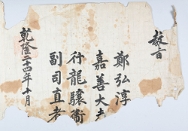 敎旨
鄭弘淳
嘉善大夫
行龍驤衛
副司直者
乾隆年十月